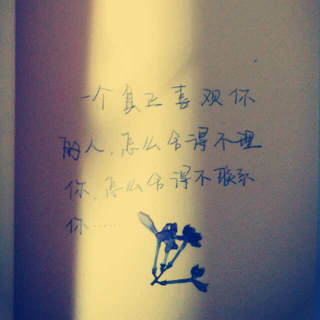 一个真正喜欢你
的人，怎么舍得不理
你，怎么舍得不联系
你……